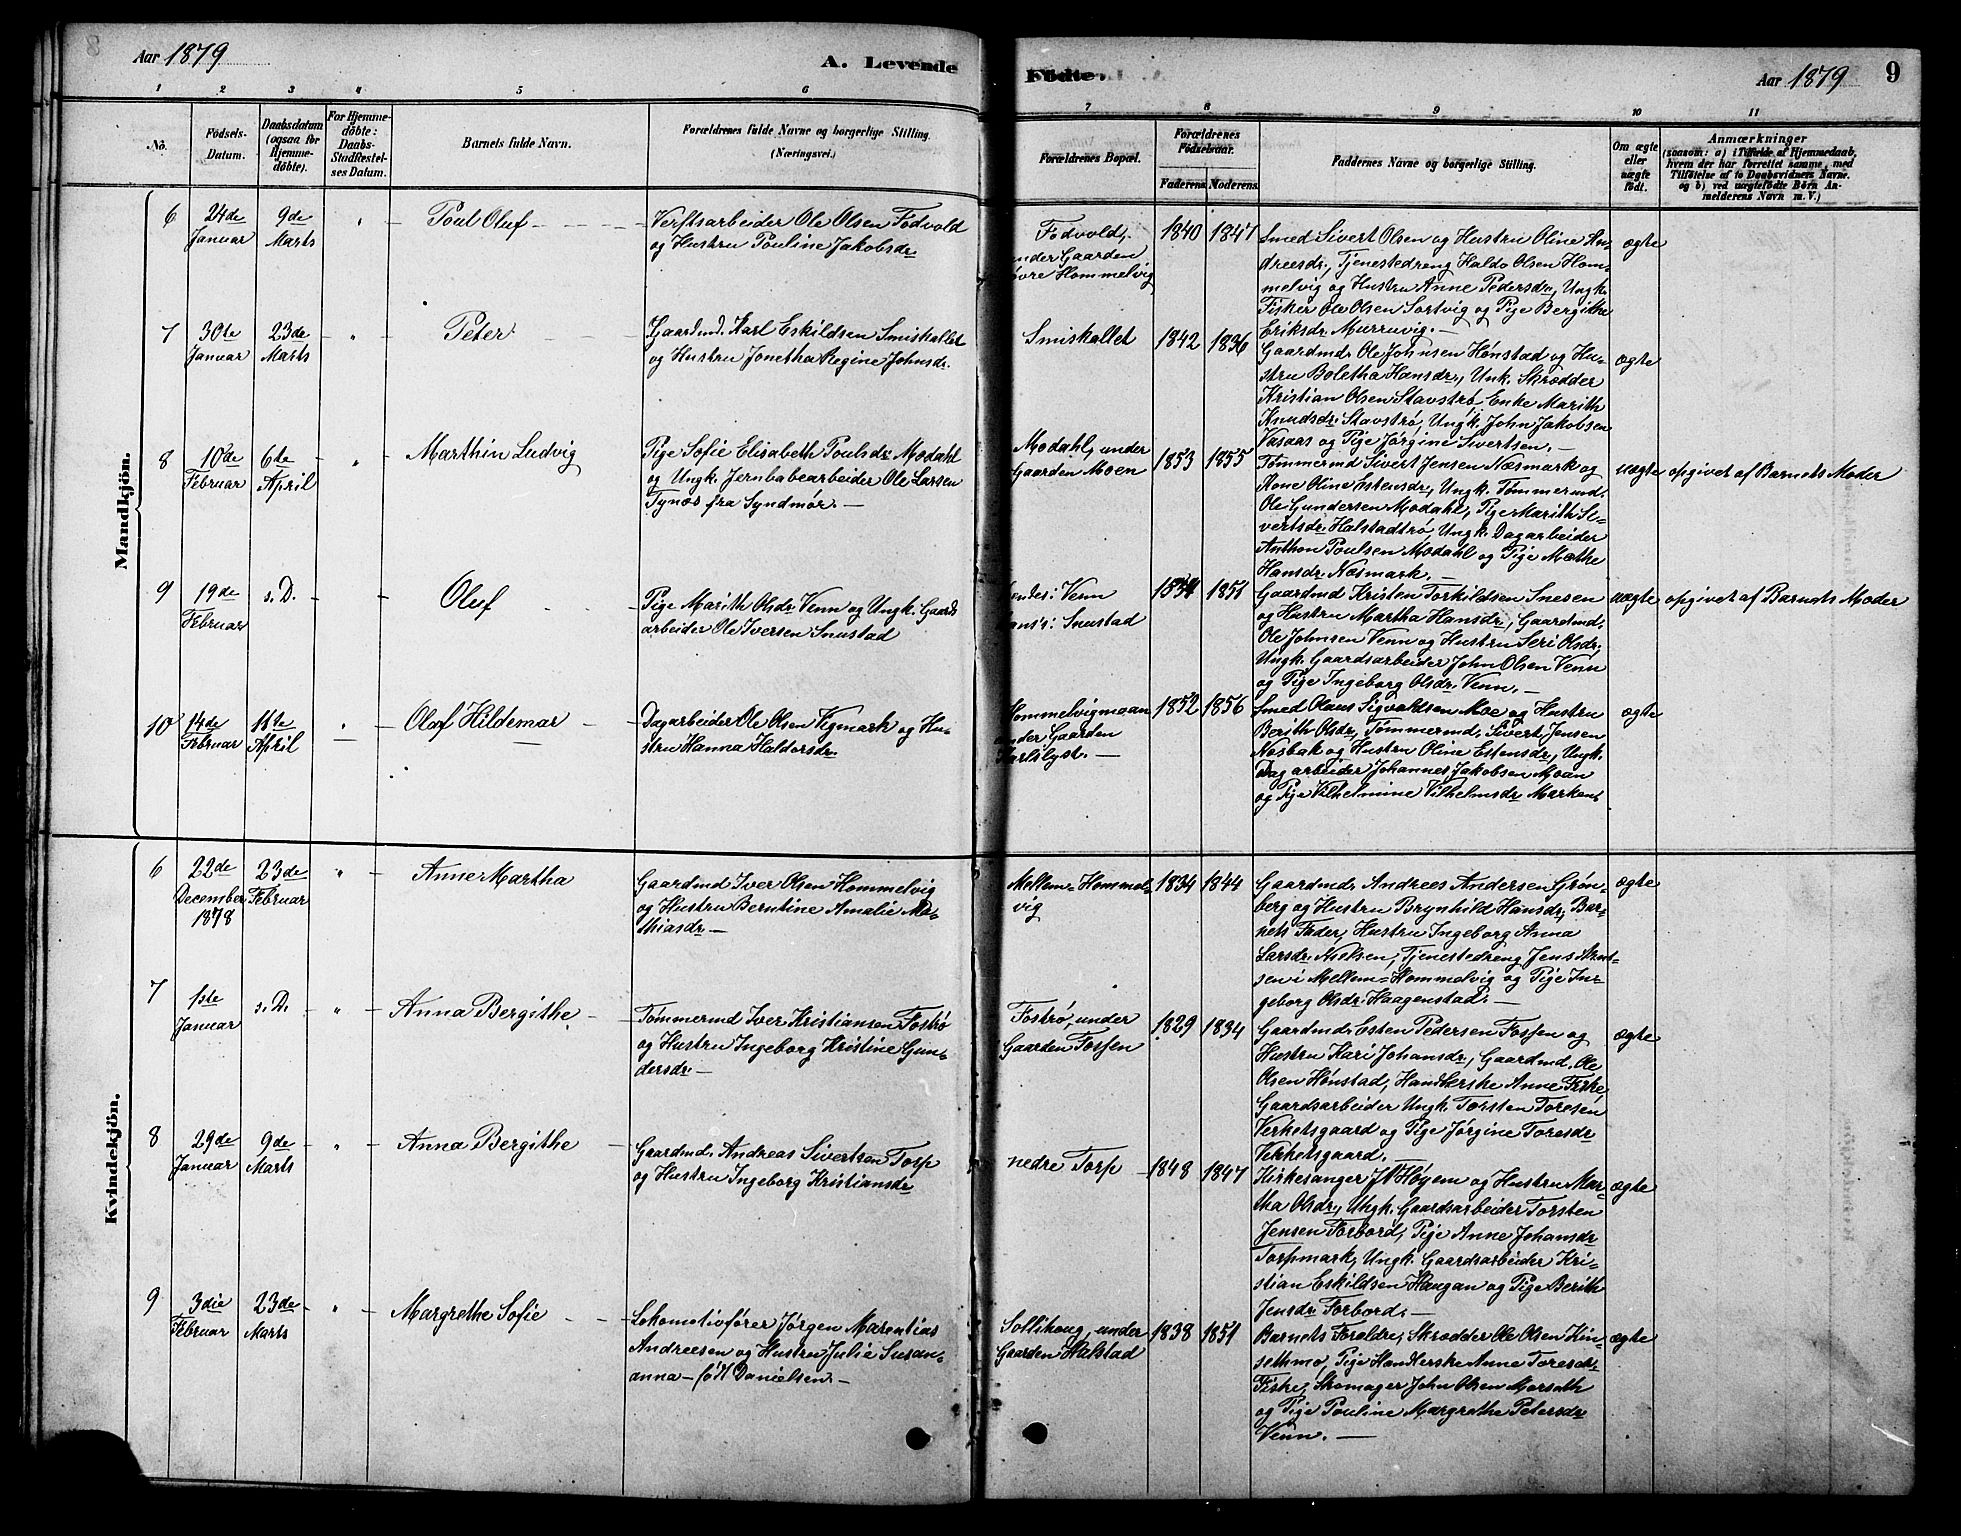 Aar 1879
A. Levende
Fødte.
Aar 1879
9
1 2 3 4 5 6 7 8 9 10 11
No.
Fødsels-Datum.
Daabsdatum (ogsaa for Hjemme-døbte).
For Hjemme-døbte: Daabs-Stadfæstel-ses Datum.
Barnets fulde Navn.
Forældrenes fulde Navne og borgerlige Stilling.
(Næringsvei.)
Forældrenes Bopæl.
Forældrenes Fødselsaar.
Faderens. Moderens.
Faddernes Navne og borgerlige Stilling.
Om ægte eller uægte født.
Anmærkninger
(saasom: a) i Tilfælde af Hjemmedaab,
hvem der har forrettet samme, med
Tilføielse af to Daabsvidners Navne.
og b) ved uægtefødte Børn An-
melderens Navn m. V.)
Mandkjön.
6 24de Januar 9de Marts " Poul Oluf
Verftsarbeider Ole Olsen Fodvold
og Hustru Pouline Jakobsdr.
Fodvold,
under Gaarden
øvre Hommelvig
1840 1847
Smed Sivert Olsen og Hustru Oline An-
dreesdr., Tjenestedreng Haldo Olsen Hom-
melvig og Hustru Anne Pedersdr., Ungk.
Fisker Ole Olsen Sortvig og Pige Bergithe
Eriksdr. Murruvig.
ægte
7 30te Januar 23de Marts " Peter
Gaardmd. Karl Eskildsen Smiskallet
og Hustru Jonetha Regine Johnsdr.
Smiskallet
1842 1836
Gaardmd. Ole Johnsen Hønstad og Hu-
stru Boletha Hansdr., Unk. Skrædder
Kristian Olsen Stavstrø, Enke Marith
Knudsdr. Stavstrø, Ungk. John Jakobsen
Vasaas og Pige Jørgine Sivertsen.
ægte
8 10de Februar 6te April " Marthin Ludvig
Pige Sofie Elisabeth Poulsdr. Modahl
og Ungk. Jernbabearbeider Ole Larsen
Tynæs fra Syndmør.
Modahl, under
Gaarden Moen
1853 1855
Tømmermd Sivert Jensen Næsmark og
Kone Oline Estensdr., Ungk. Tømmermd.
Ole Gundersen Modahl, Pige Marith Si-
vertsdr. Halstadtrø, Ungk. Dagarbeider
Anthon Poulsen Modahl og Pige Mæthe
Hansdr. Næsmark.
uægte
opgivet af Barnets Moder
9 19de Februar s. D. Oluf
Pige Marith Olsdr. Venn og Ungk. Gaards
arbeider Ole Iversen Snustad
Venn
Snustad
1854 1851
Gaardmd Kristen Torkildsen Snesen
og Hustru Martha Hansdr., Gaardmd.
Ole Johnsen Venn og Hustru Seri Olsdr.
Ungk. Gaardsarbeider John Olsen Venn
og Pige Ingeborg Olsdr. Venn.
uægte
opgivet af Barnets Moder
10 14de Februar 11te April " Olaf Hildemar
Dagarbeider Ole Olsen Vigmark og Hu-
stru Hanna Haldorsdr.
Hommelvigmoan
under Gaarden
Karlslyst.
1852 1856
Smed Olaus Sigvaldsen Moe og Hustru
Berith Olsdr., Tømmermd. Sivert Jensen
Næsbak og Hustru Oline Estensdr., Ungk.
Dagarbeider Johannes Jakobsen Moan
og Pige Vilhelmine Vilhelmsdr. Marken
ægte
Kvindekjön.
6 22de December 1878 23de Februar " Anne Martha
Gaardmd Iver Olsen Hommelvig
og Hustru Berntine Amalie Ma-
thiasdr.
Mellem-Hommel-
vig
1834 1844
Gaardmd. Andrees Andersen Grøn-
berg og Hustru Brynhild Hansdr., Bar-
nets Fader, Hustru Ingeborg Anna
Larsdr. Nielsen, Tjenestedreng Jens Arnt-
sen i Mellem-Hommelvig og Pige In-
geborg Olsdr. Haagenstad.
ægte
7 1ste Januar s. D. " Anna Bergithe
Tømmermd Iver Kristiansen Fostrø
og Hustru Ingeborg Kristine Gun-
dersdr.
Fostrø, under
Gaarden Fosfen
1829 1834
Gaardmd. Esten Pedersen Fosfen og
Hustru Kari Johansdr., Gaardmd. Ole
Olsen Hønstad, Handlerske Anne Fiske,
Gaardsarbeider Ungk. Torsten Toresen
Verketsgaard og Pige Jørgine Toresdr
Verketsgaard.
ægte
8 29de Januar 9de Marts " Anna Bergithe
Gaardmd. Andreas Sivertsen Torp
og Hustru Ingeborg Kristiansdr
nedre Torp
1848 1847
Kirkesanger Høyem og Hustru Mar-
tha Olsdr., Ungk. Gaardsarbeider Torsten
Jensen Forbord, Pige Anne Johansdr
Torpmark, Ungk. Gaardsarbeider Kri-
stian Eskildsen Haugan og Pige Berith
Jensdr. Forbord.
ægte
9 3die Februar 23de Marts " Margrethe Sofie
Lokomotivfører Jørgen Marentius
Andreesen og Hustru Julie Susan-
anna - født Danielsen.
Sollihoug, under
Gaarden Halstad
1838 1851
Barnets Foreldre, Skrædder Ole Olsen Kin-
sethmo, Pige Handlerske Anne Toresdr.
Fiske, Skomager John Olsen Morsæth
og Pige Pouline Margrethe Petersdr
Venn.
ægte